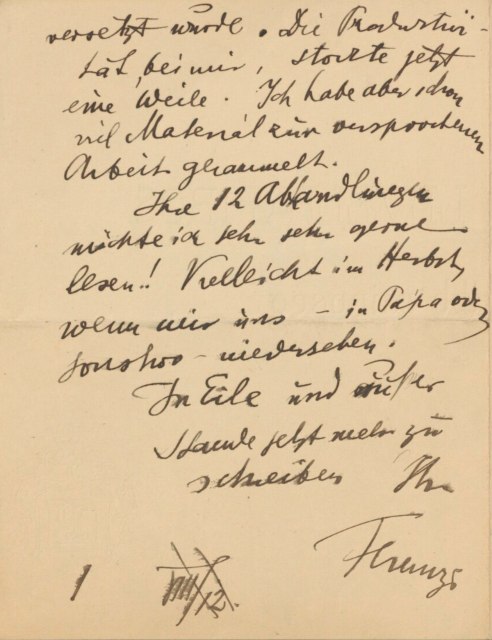 versetzt wurde. Die Produktivi-
tät, bei mir, stockte jetzt
eine Weile. Ich habe aber schon
viel Material zur versprochenen
Arbeit gesammelt.
Ihre 12 Abhandlungen
möchte ich sehr sehr gerne
lesen!! Vielleicht im Herbst,
wenn wir uns – in Pápa oder
sonstwo – wiedersehen.
In Eile und außer
Stande jetzt mehr zu
schreiben Ihr
Ferenczi